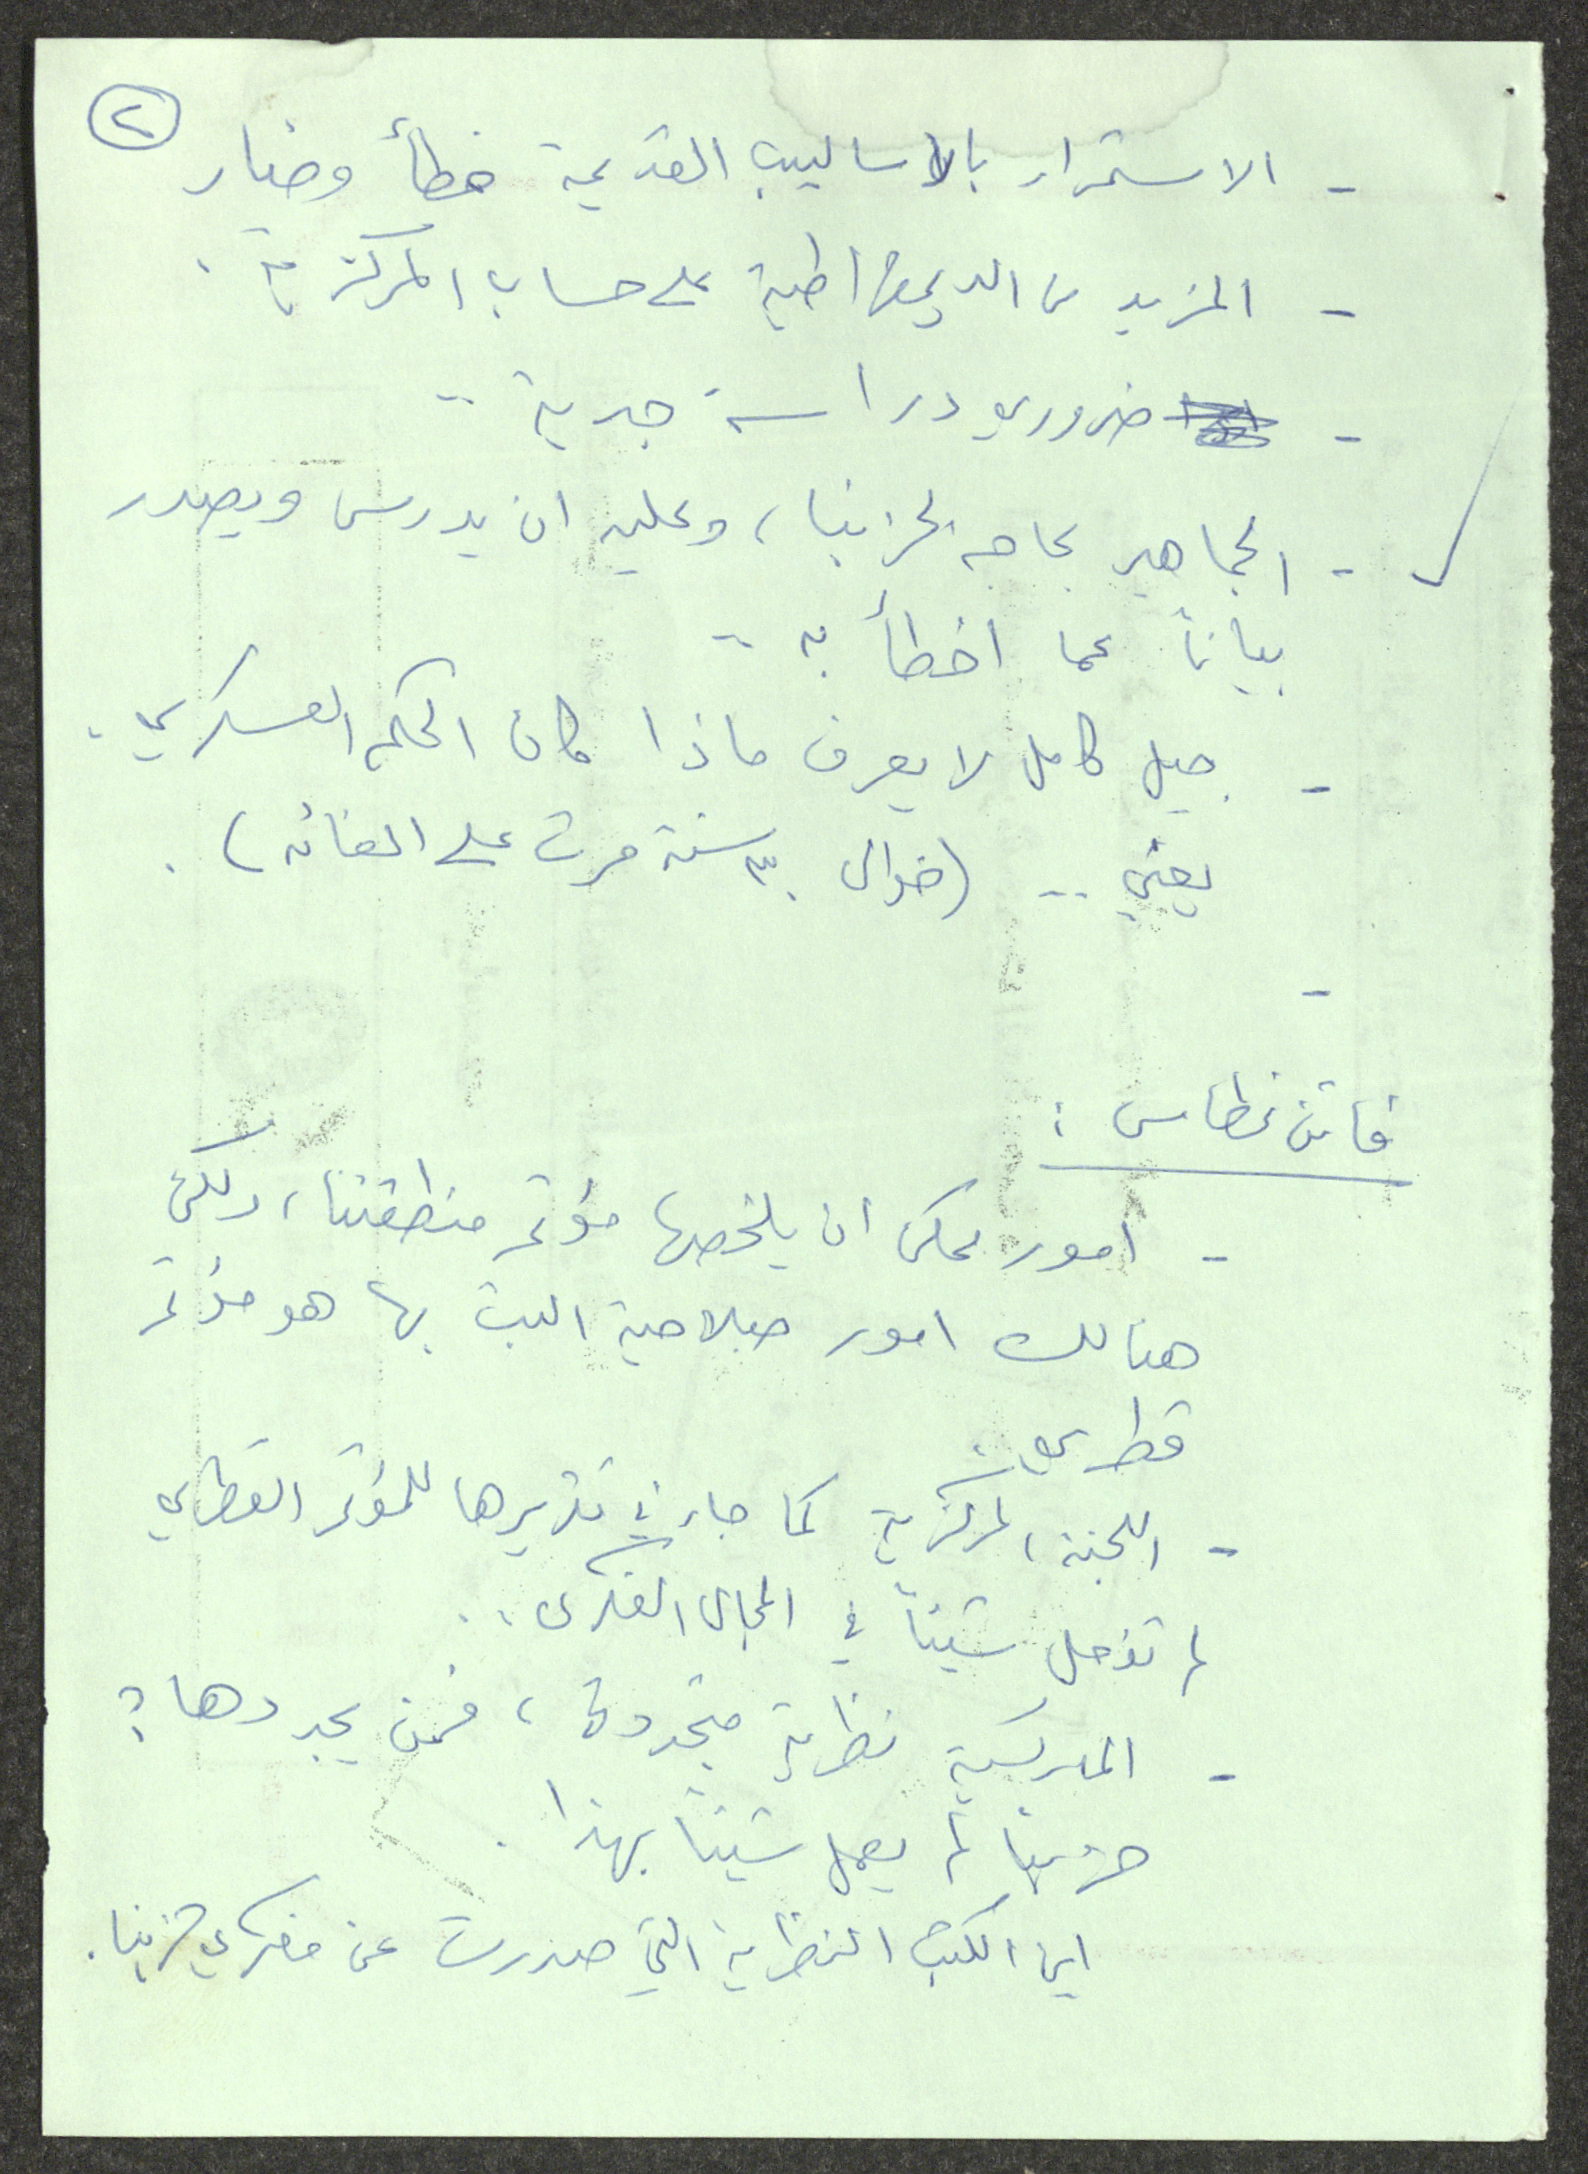 ٢
- الاستمرار بالاساليب القديمة خطأ وضار
- المزيد من الديمقراطية على حساب المركزية .
- ضروري دراسة جدية ..
- الجماهير بحاجه لحزبنا ، وعليه ان يدرس ويصدر
بياناً عما اخطأ به ..
- جيل كامل لا يعرف ماذا كان الحكم العسكري .
يعني .. (حوالى ٣٠ سنة مرت على الغائه) .
-
فاتن غطاس :
- امور ممكن ان يلخصها مؤتمر منطقتنا ، ولكن
هنالك امور صلاحية البت بها هو مؤتمر
قطري .
- اللجنة المركزية كما جاء في تقريرها للمؤتمر القطري
لم تفعل شيئاً في المجال الفكرى ..
- الماركسية نظرية متجددة ، فمن يجددها ؟
حزبنا لم يعمل شيئاً بهذا .
اين الكتب النظرية التي صدرت عن مفكري حزبنا .